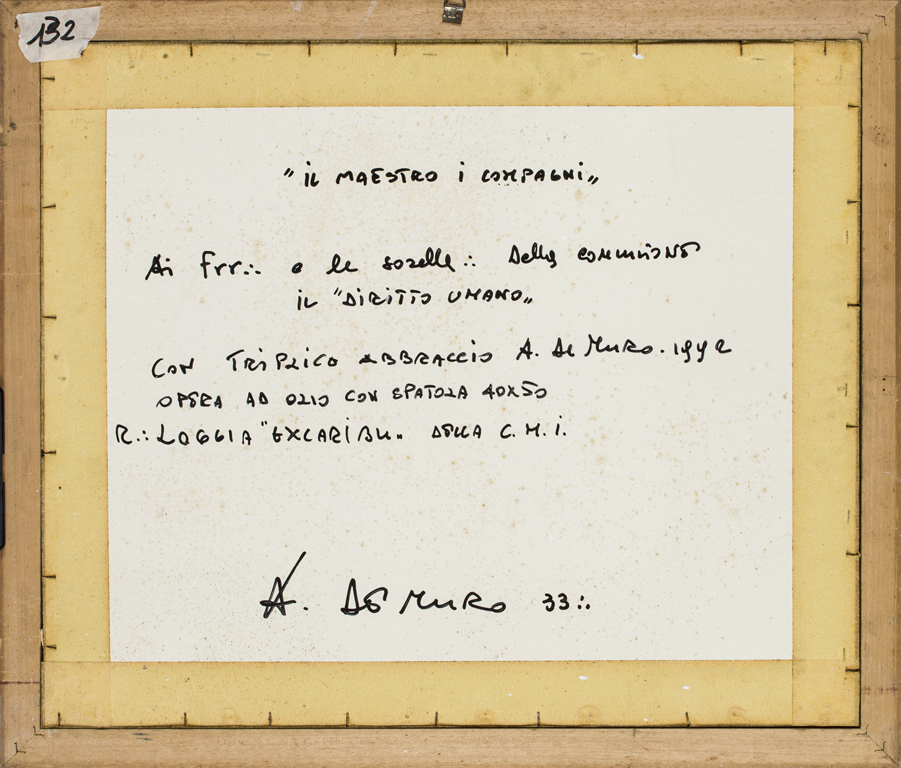 132
"IL MAESTRO I COMPAGNI"
Ai frr∴ e le sorelle∴ Della COMUNIONE
IL "DIRITTO UMANO"
CON TRIPLICO ABBRACCIO A. De MURO. 1992
OPERA AD OLIO CON SPATOLA 40X50
R∴ LOGGIA "EXCARIBU" DELLA C.M.I.
A. DE MURO 33∴